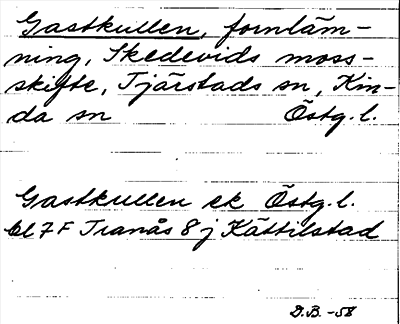 Gastkullen, fornläm-
ning, Skedevids moss-
skifte, Tjärstads sn, Kin-
da sn Östg. l.
Gastkullen ek Östg. l.
bl 7 F Tranås 8 j Kättilstad
D.B. -58